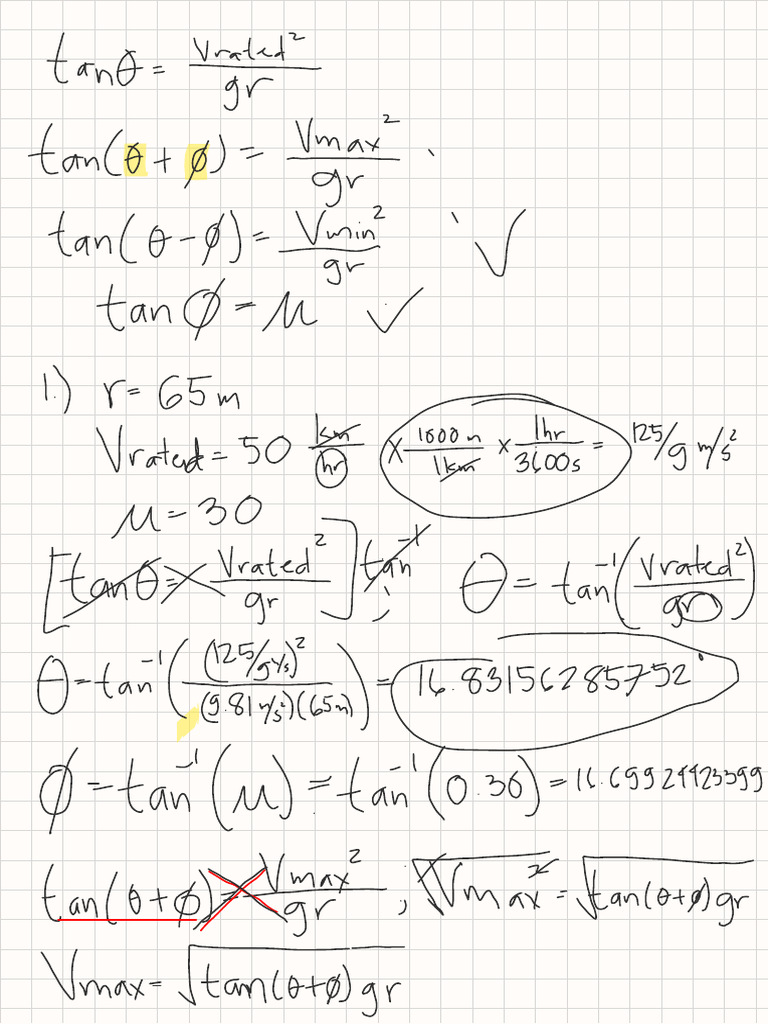 tanθ = Vrated²/gr
tan(θ + ø) = Vmax²/gr
tan(θ - ø) = Vmin²/gr ✓
tan ø = μ ✓
1.) r = 65 m
Vrated = 50 km/hr × 1000 m/1 km × 1hr/3600s = 125/9 m/s²
μ = 30
[tanθ = Vrated²/gr] tan⁻¹ ; θ = tan⁻¹(Vrated²/gr)
θ = tan⁻¹((125/9 m/s)²/(9.81 m/s²)(65m)) = 16.83156285752°
ø = tan⁻¹(μ) = tan⁻¹(0.30) = 16.69924423399
tan(θ + ø) = Vmax²/gr ; √Vmax² = √tan(θ+ø) gr
Vmax = √tan(θ+ø) gr